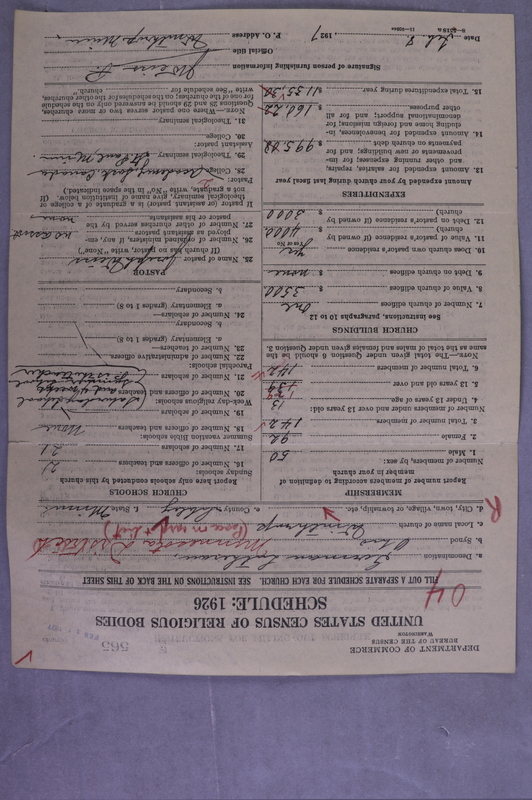 565
DEPARTMENT OF COMMERCE
BUREAU OF THE CENSUS
WASHINGTON
UNITED STATES CENSUS OF RELIGIOUS BODIES
SCHEDULE: 1926
04
FILL OUT A SEPARATE SCHEDULE FOR EACH CHURCH. SEE INSTRUCTIONS ON THE BACK OF THIS SHEET
a. Denomination German Lutheran
b. Synod Ohio Minnesota District
c. Local name of church
d. City, town, village, or township, etc. Winthrop e. County Sibley f. State Minn
R
MEMBERSHIP
Report number of members according to definition of member in your church
Number of members, by sex:
1. Male 50
2. Female 92
3. Total number of members 142
Number of members under and over 13 years old:
4. Under 13 years of age 13
5. 13 years old and over
6. Total number of members 142
NOTE.—The total given under Question 6 should be the same as the total of males and females given under Question 3.
CHURCH BUILDINGS
See instructions, paragraphs 10 to 12
7. Number of church edifices One
8. Value of church edifices $ 3500
9. Debt on church edifices $ none
10. Does church own pastor's residence Yes
Yes or No
11. Value of pastor's residence (if owned by church) $ 4000
12. Debt on pastor's residence (if owned by church) $ 3000
EXPENDITURES
Amount expended by your church during last fiscal year
13. Amount expended for salaries, repairs, and other running expenses; for improvements or new building; and for payments on church debt $ 995.08
14. Amount expended for benevolences, including home and foreign missions; for denominational support; and for all other purposes $ 160.22
15. Total expenditures during year $ 1155.30
CHURCH SCHOOLS
Report here only schools conducted by this church
Sunday schools:
16. Number of officers and teachers 2
17. Number of scholars 21
Summer vacation Bible schools:
18. Number of officers and teachers None
19. Number of scholars
Week-day religious schools:
20. Number of officers and teachers
21. Number of scholars
Saturday school
Parochial schools:
22. Number of administrative officers
23. Number of teachers—
a. Elementary (grades 1 to 8)
b. Secondary
24. Number of scholars—
a. Elementary (grades 1 to 8)
b. Secondary
PASTOR
25. Name of pastor Joseph Weiss
(If church has no pastor, write "None")
26. Number of ordained ministers, if any, employed as assistant pastors no assist
27. Number of other churches served by the pastor or his assistants none
If pastor (or assistant pastor) is a graduate of a college or theological seminary, give name of institution below. (If not a graduate, write "No" in the space indicated.)
Pastor:
28. College
29. Theological seminary St. Paul, Minn.
Assistant pastor:
30. College
31. Theological seminary
NOTE.—Where one pastor serves two or more churches, Questions 25 and 29 should be answered only on the schedule for one of the churches; on the schedules for the other churches, write "See schedule for church."
Signature of person furnishing information J Weiss
Official title P.
P. O. Address Winthrop Minn.
Date Feb. 8, 1927